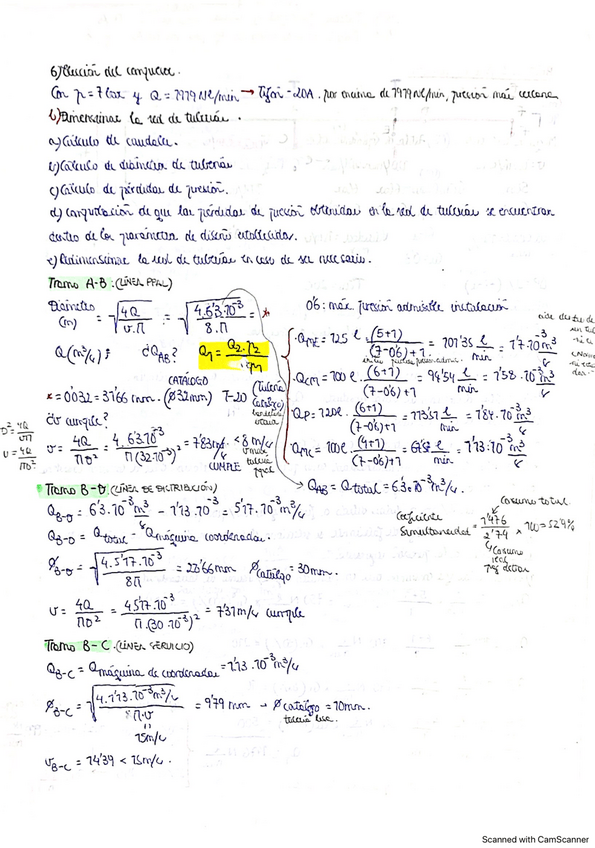 6) Elección del compresor.
Con p = 7 bar y Q = 1979 Nl/min → Tifón - 20A. por encima de 1979 Nl/min, presión más cercana
b) Dimensionar la red de tuberías.
a) Cálculo de caudales.
b) Cálculo de diámetro de tuberías
c) Cálculo de pérdidas de presión.
d) comprobación de que las pérdidas de presión obtenidas en la red de tuberías se encuentran
dentro de los parámetros de diseño establecidos.
e) Redimensionar la red de tuberías en caso de ser necesario.
Tramo A-B: (LÍNEA PPAL)
Diámetro (m) = √(4Q / v.π) = √(4.6'3.10⁻³ / 8.π) = *
0'6: máx presión admisible instalación
Q (m³/s) = ¿Q_AB? Q₁ = Q₂.p₂ / p₁
Q_ME = 725 l . (5+1) / (7-0'6)+1 = 101'35 l/min = 1'7.10⁻³ m³/s
Q_CM = 100 l . (6+1) / (7-0'6)+1 = 94'54 l/min = 1'58.10⁻³ m³/s
Q_P = 120 l . (6+1) / (7-0'6)+1 = 113'51 l/min = 1'89.10⁻³ m³/s
Q_MC = 100 l . (4+1) / (7-0'6)+1 = l/min = 1'13.10⁻³ m³/s
CATÁLOGO
* = 0'032 = 31'66 mm. (Ø32mm) T-20 (tubería catálogo)
¿v cumple?
D² = 4Q / vπ
v = 4Q / πD²
v = 4Q / πD² = 4.6'3.10⁻³ / π(32.10⁻³)² = 7'83 m/s < 8 m/s
CUMPLE
Q_AB = Q total = 6'3.10⁻³ m³/s.
Tramo B-D (LÍNEA DE DISTRIBUCIÓN)
Q_B-D = 6'3.10⁻³ m³/s - 1'13.10⁻³ = 5'17.10⁻³ m³/s
Q_B-D = Q total - Q máquina coordenadas.
Coeficiente Simultaneidad = 1'476 / 2'74 × 100 = 52'4%
Consumo total
Consumo real
Ø_B-D = √(4.5'17.10⁻³ / 8π) = 22'66 mm Ø catálogo = 30 mm.
v = 4Q / πD² = 4.5'17.10⁻³ / π.(30.10⁻³)² = 7'31 m/s cumple
Tramo B-C (LÍNEA SERVICIO)
Q_B-C = Q máquina de coordenadas = 1'13.10⁻³ m³/s
Ø_B-C = √(4.1'13.10⁻³ m³/s / π.v) = 9'79 mm → Ø catálogo = 10 mm.
15 m/s
v_B-C = 14'39 < 15 m/s.
Scanned with CamScanner